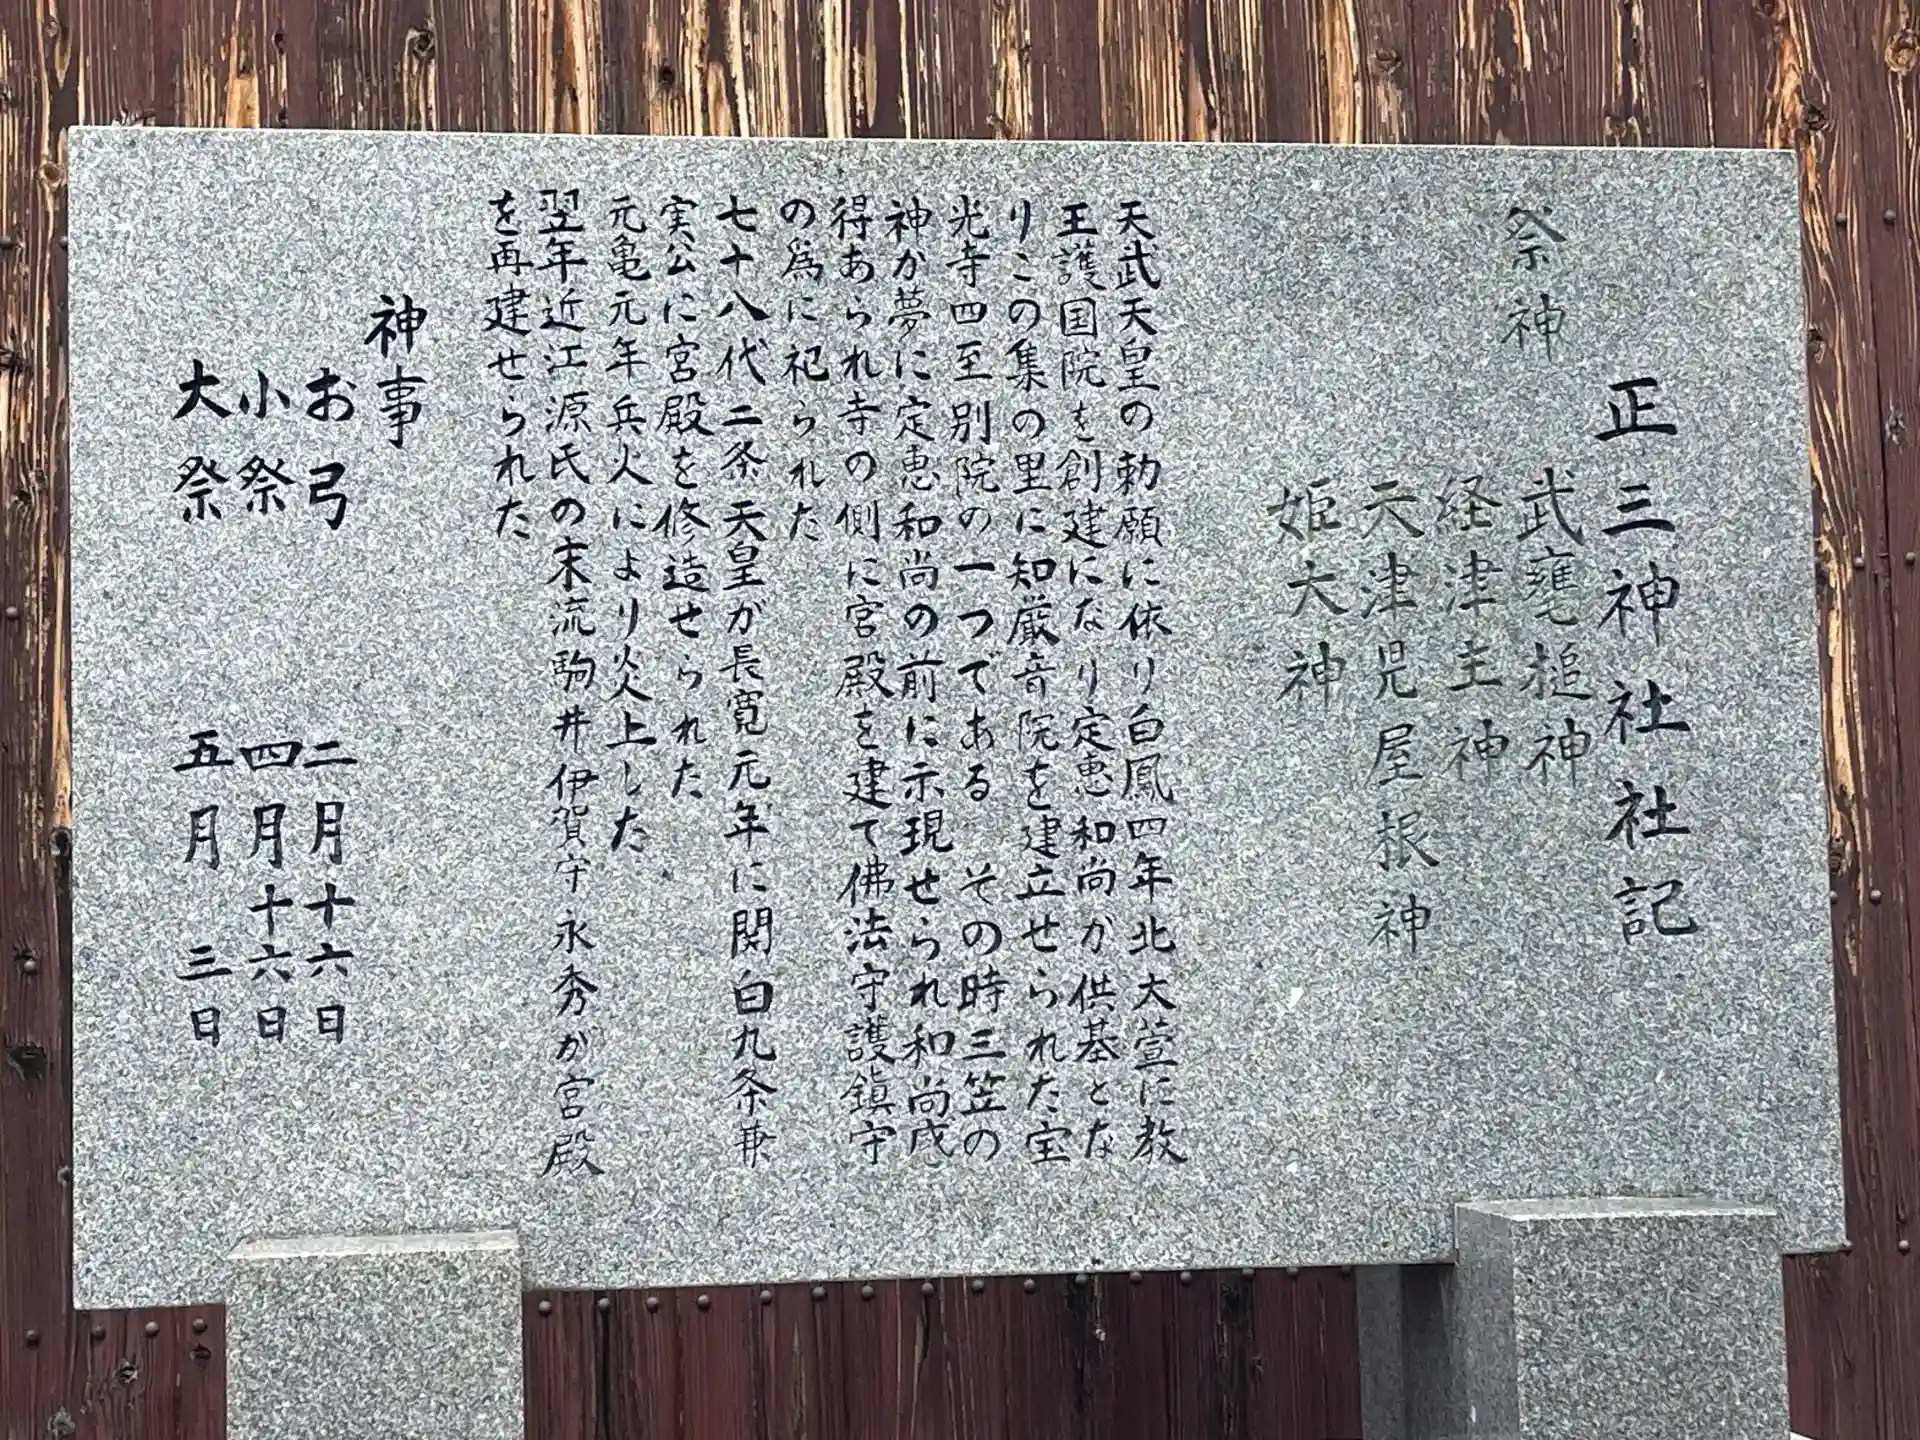 正三神社社記
祭神
武甕槌神
経津主神
天津児屋根神
姫大神
天武天皇の勅願に依り白鳳四年北大萱に教
王護国院を創建になり定恵和尚が供基とな
りこの集の里に知厳音院を建立せられた宝
光寺四至別院の一つである その時三笠の
神が夢に定恵和尚の前に示現せられ和尚戌
得あられ寺の側に宮殿を建て佛法守護鎮守
の為に祀られた
七十八代二条天皇が長寛元年に関白九条兼
実公に宮殿を修造せられた
元亀元年兵火により火上した
翌年近江源氏の末流駒井伊賀守永秀が宮殿
を再建せられた
神事
お弓 二月十六日
小祭 四月十六日
大祭 五月三日